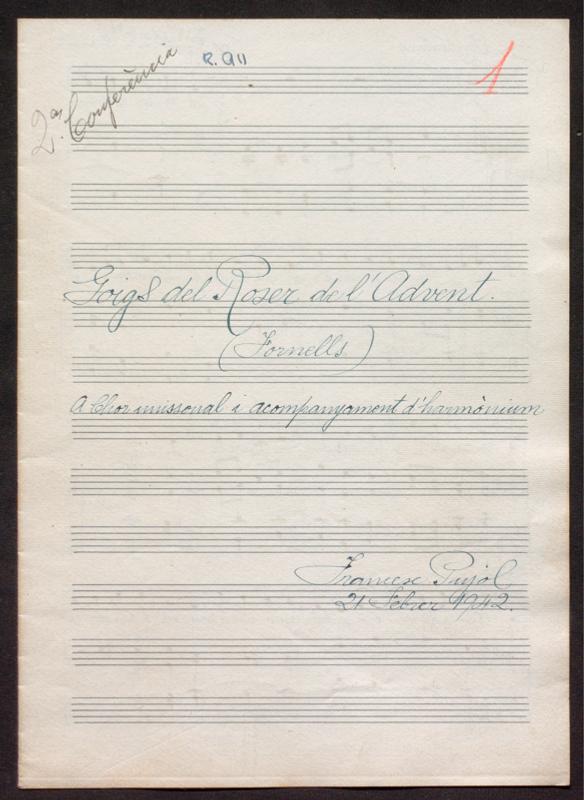 2ª. Conferència
R. 911
1
Goigs del Roser de l'Advent.
(Fornells)
A Chor unissonal i acompanyament d'harmònium
Francesc Pujol
21 Febrer 1942.